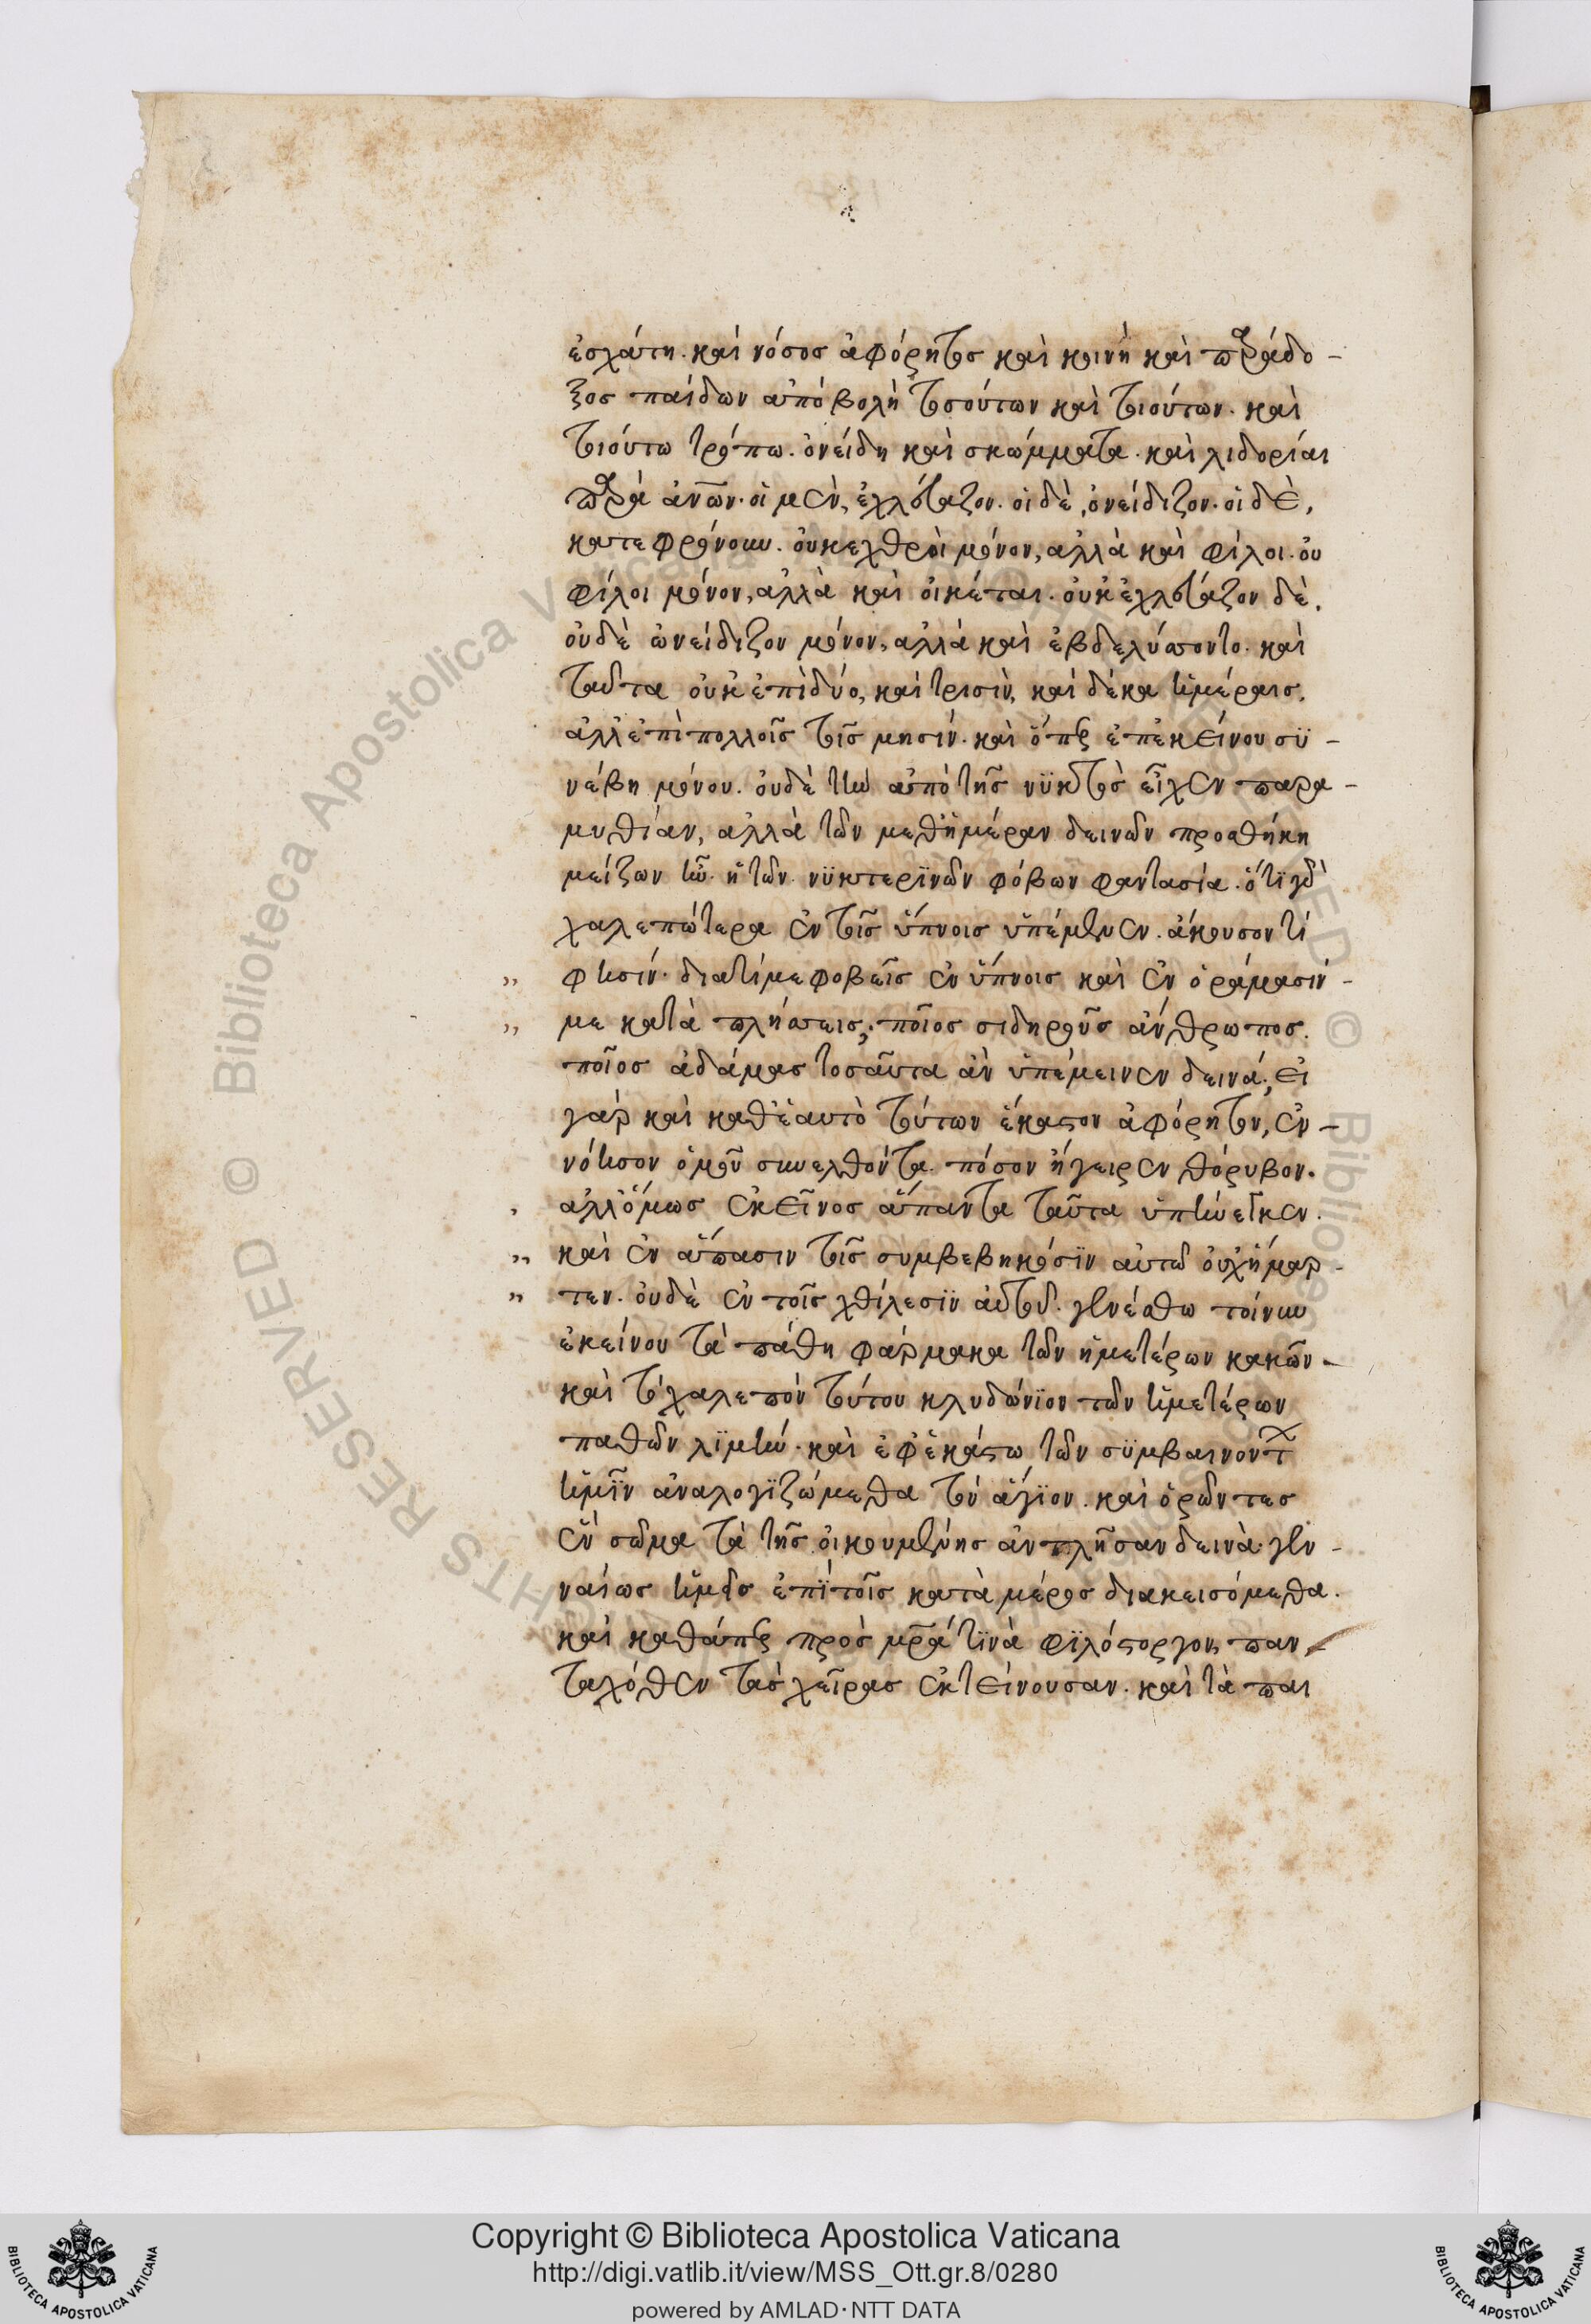 ἐσχάτη. καὶ νόσος ἀφόρητος καὶ καινὴ καὶ παράδο-
ξος παίδων ἀποβολὴ τοσούτων καὶ τοιούτων. καὶ
τοιούτω τρόπω. ὀνείδη καὶ σκώμματα. καὶ λιδορίαι
παρὰ ἀνων. οἱ μὲν, ἐχλεύαζον. οἱ δὲ, ὀνείδιζον. οἱ δὲ,
κατεφρόνουν. οὐκ ἐχθροὶ μόνον, ἀλλὰ καὶ φίλοι. οὐ
φίλοι μόνον, ἀλλὰ καὶ οἰκέται. οὐκ ἐχλεύαζον δὲ,
οὐδὲ ὠνείδιζον μόνον, ἀλλὰ καὶ ἐβδελύσσοντο. καὶ
ταῦτα οὐκ ἐπὶ δύο, καὶ τρισὶν, καὶ δέκα ἡμέραις.
ἀλλ' ἐπὶ πολλοῖς τοῖς μησίν. καὶ ὅπερ ἐπ' ἐκείνου συ-
νέβη μόνου. οὐδὲ τὴν ἀπὸ τῆς νϋκτὸς εἶχεν παρα-
μυθίαν, ἀλλὰ τῶν μεθ' ἡμέραν δεινῶν προσθήκη
μείζων ἦν. ἡ τῶν νϋκτερϊνῶν φόβων φαντασία. ὅτϊ γὰρ
χαλεπώτερα ἐν τοῖς ὕπνοις ὑπέμενεν. ἄκουσον τί
φησίν. διατί με φοβεῖς ἐν ὕπνοις καὶ ἐν ὁράμασίν-
με καταπλήσσεις; ποῖος σιδηροῦς ἄνθρωπος.
ποῖος ἀδάμας τοσαῦτα ἂν ὑπέμεινεν δεινά; εἰ
γὰρ καὶ καθ' ἑαυτὸ τούτων ἕκαστον ἀφόρητον, ἐν-
νόησον ὁμοῦ συνελθόντα. πόσον ἤγειρεν θόρυβον.
ἀλλ' ὅμως ἐκεῖνος ἅπαντα ταῦτα ὑπήνεγκεν.
καὶ ἐν ἅπασιν τοῖς συμβεβηκόσϊν αὐτῶ οὐχ ἥμαρ-
τεν. οὐδὲ ἐν τοῖς χείλεσϊν αὐτοῦ. γενέσθω τοίνυν
ἐκείνου τὰ πάθη φάρμακα τῶν ἡμετέρων κακῶν.
καὶ τὸ χαλεπὸν τούτου κλυδώνϊον τῶν ἡμετέρων
παθῶν λϊμήν. καὶ ἐφ' ἑκάστω τῶν σϋμβαινόντ
ἡμῖν ἀναλογϊζώμεθα τὸν ἅγϊον. καὶ ὁρῶντες
ἓν σῶμα τὰ τῆς οἰκουμένης ἀντλῆσαν δεινὰ. γεν-
ναίως ἡμεῖς ἐπϊ τοῖς κατὰ μέρος διακεισόμεθα.
καὶ καθάπερ πρὸς μρα τϊνὰ φϊλόστοργον, παν-
ταχόθεν τὰς χεῖρας ἐκτείνουσαν. καὶ τὰ παι
Copyright © Biblioteca Apostolica Vaticana
http://digi.vatlib.it/view/MSS_Ott.gr.8/0280
powered by AMLAD·NTT DATA